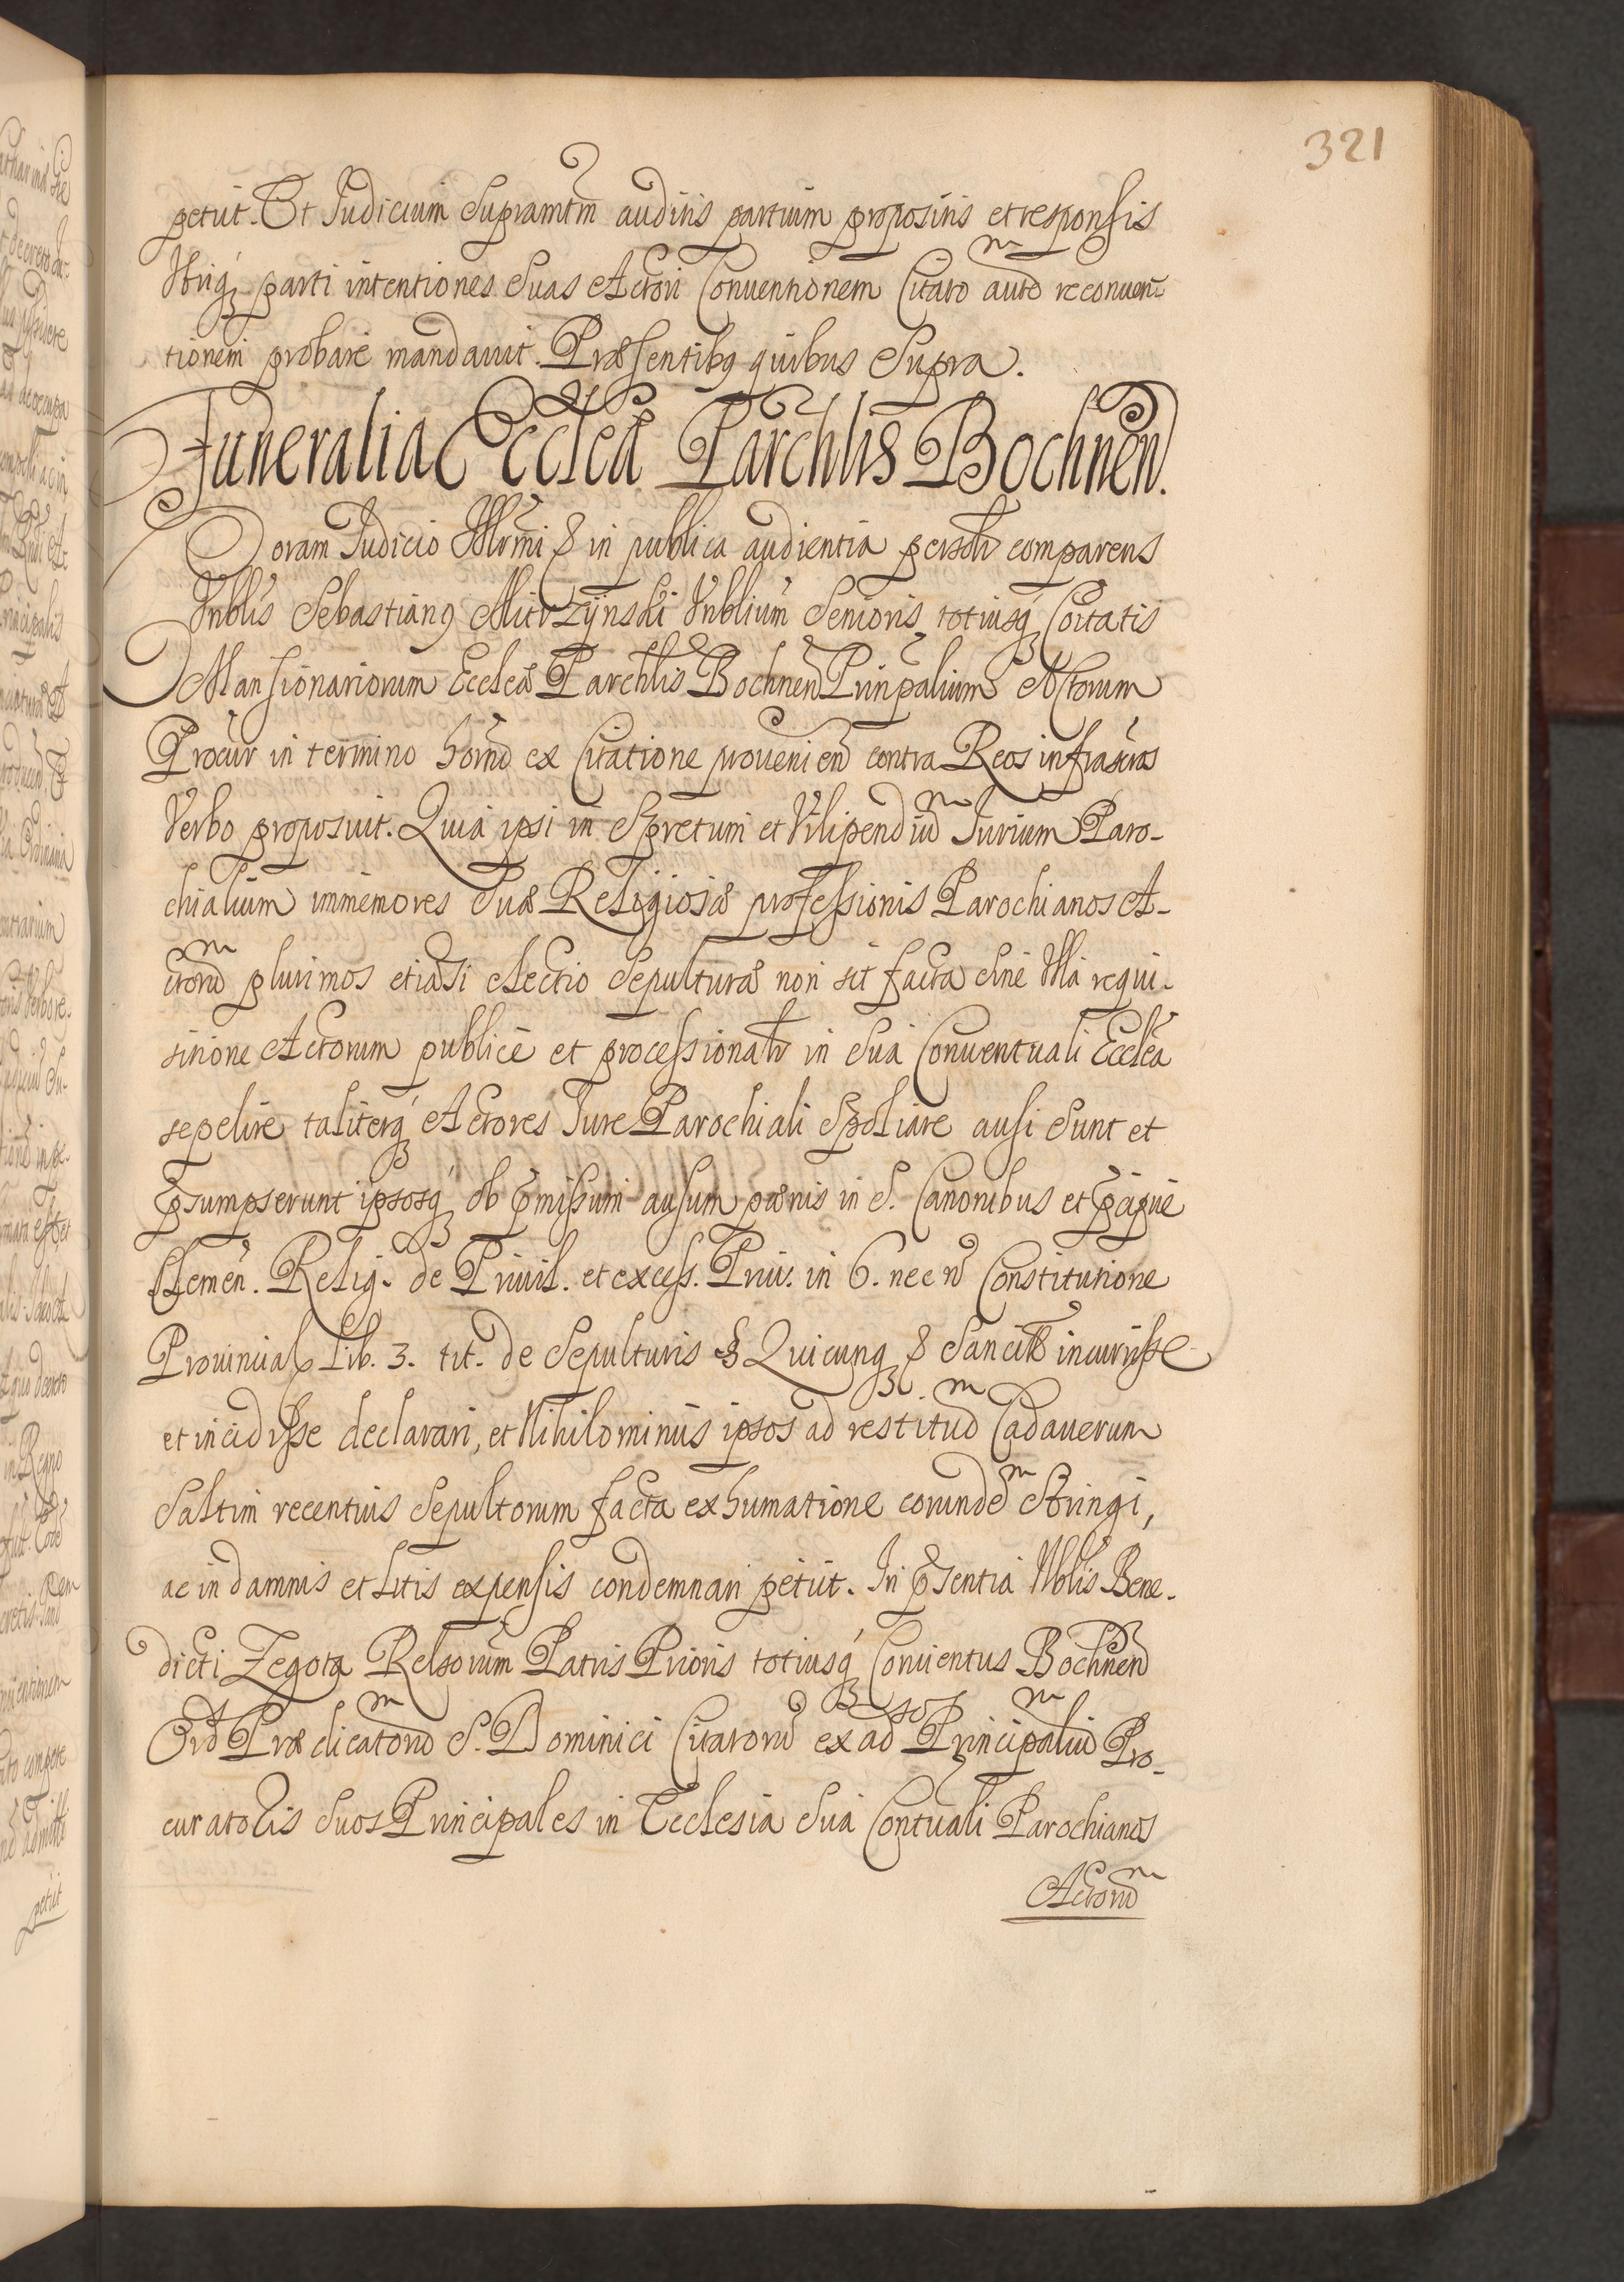 321
petiit. Et Judicium Supramtm auditis partium propositis et responsis
Utriq3 parti intentiones Suas Actori Conventionem Citato autm reconven-
tionem probare mandavit. Præsentibq quibus Supra.
Funeralia Ecclæ Parchlis Bochnen.
Coram Judicio Illrmi & in publica audientia persolr comparens
Vnblis Sebastianq Mitrzÿnski Vnblium Senioris totiusq3 Coitatis
Mansionariorum Ecclæ Parchlis Bochnen Prinpalium Actorum
Procur in termino horno ex Citatione provenien contra Reos infrascros
Verbo proposuit. Quia ipsi in Spretum et Vilipendium Jurium Paro-
chialium immemores Suæ Religiosæ professionis Parochianos A-
ctorum plurimos etiasi electio Sepulturæ non sit facta Sine Ulla requi-
sitione Actorum publice et processionalr in Sua Conventuali Eccla
sepelire taliterq3 Actores Jure Parochiali Spoliare ausi Sunt et
psumpserunt ipsosq3 ob pmissum ausum pœnis in S. Canonibus et
Clemen. Relig. de Privil. et excess. Priv. in 6. nec n Constitutione
Provincial Lib. 3. tit. de Sepulturis § Quicunq3 & Sancit incurrisse
et incidisse declarari, et Nihilominus ipsos ad restitum Cadaverum
Saltim recentius Sepultorum facta exhumatione eorundem Stringi,
ac in damnis et Litis expensis condemnari petiit. In psentia Nblis Bene-
dicti Zegota Relsorum Patris Prioris totiusq3 Conventus Bochnen
Ord Prædicatorum S. Dominici Citatorum ex adso Principalium Pro-
curatoris Suos Principales in Ecclesia Sua Contuali Parochianos
Actorum